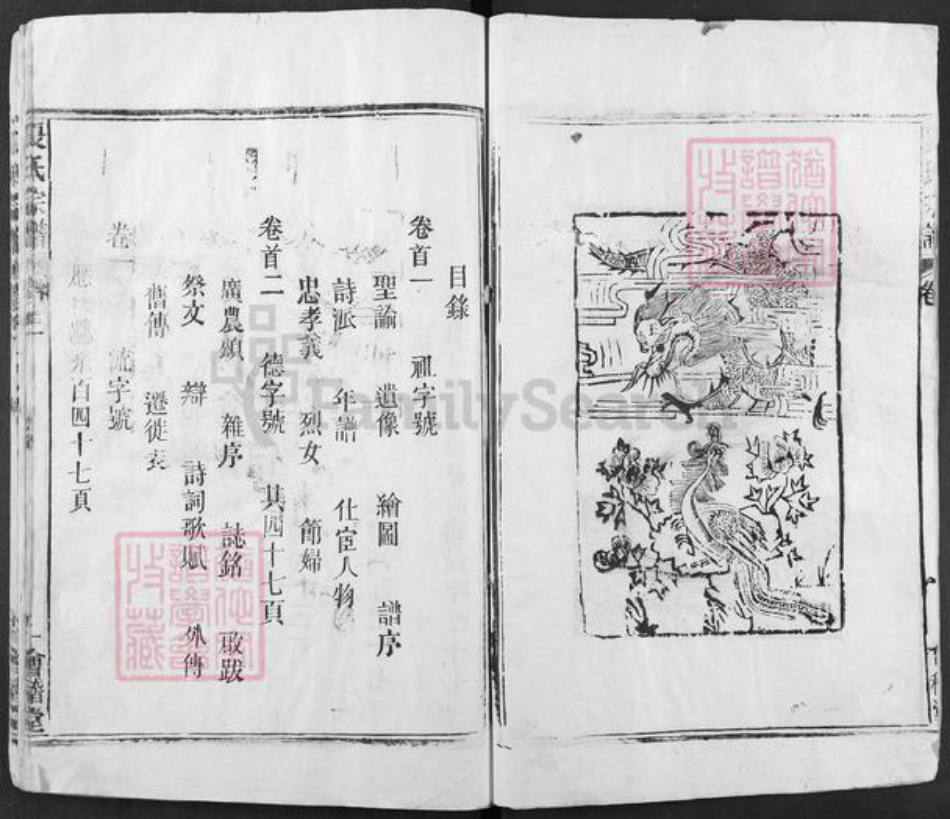 目錄
卷首一 祖字號
聖諭 遺像 繪圖 譜序
詩派 年譜 仕宦人物
忠孝義 烈女 節婦
卷首二 德字號 共四十七頁
廣農頌 雜序 誌銘 啟跋
祭文 辯 詩詞歌賦 外傳
舊傳 遷徙衣
卷一 流字號
百四十七頁
氏宗譜
會譜堂
卷
譜學會
收藏
FamilySearch